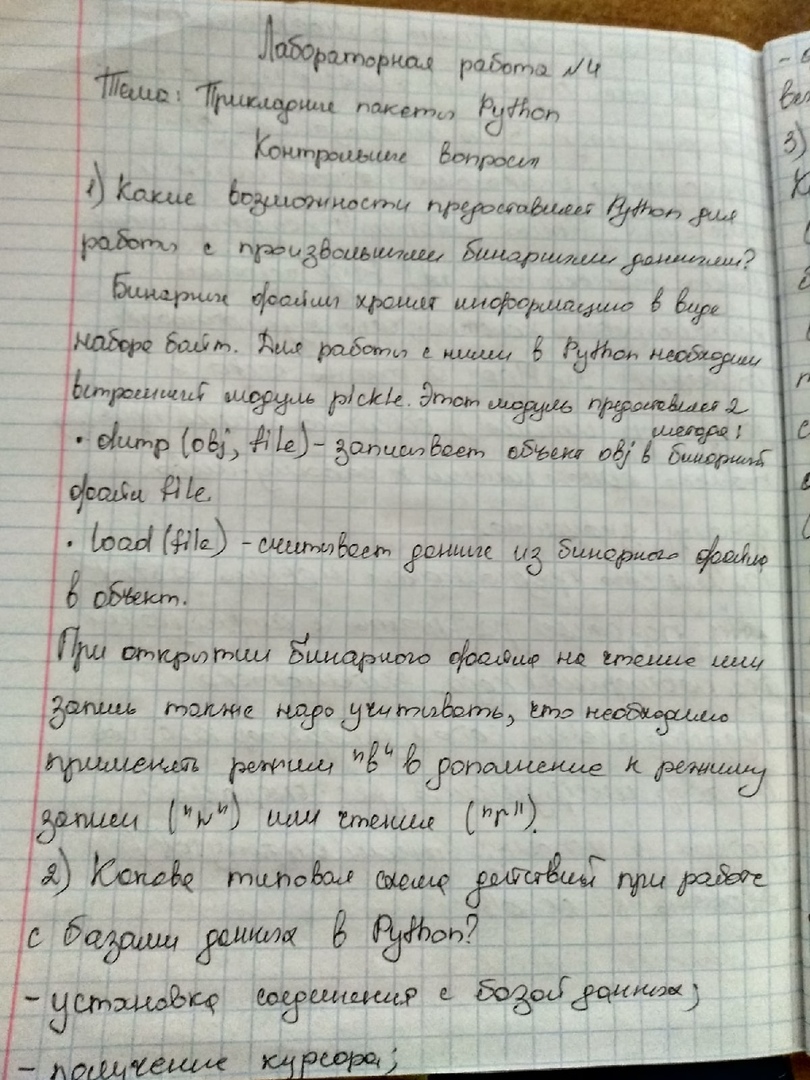 Лабораторная работа №4
Тема: Прикладные пакеты Python
Контрольные вопросы
1) Какие возможности предоставляет Python для
работы с произвольными бинарными данными?
Бинарные файлы хранят информацию в виде
набора байт. Для работы с ними в Python необходим
встроенный модуль pickle. Этот модуль предоставляет 2
метода:
• dump (obj, file) - записывает объект obj в бинарный
файл file
• load (file) - считывает данные из бинарного файла
в объект.
При открытии бинарного файла на чтение или
запись также надо учитывать, что необходимо
применять режим "в" в дополнение к режиму
записи ("w") или чтения ("r").
2) Какова типовая схема действий при работе
с базами данных в Python?
- установка соединения с базой данных;
- получение курсора;
3)